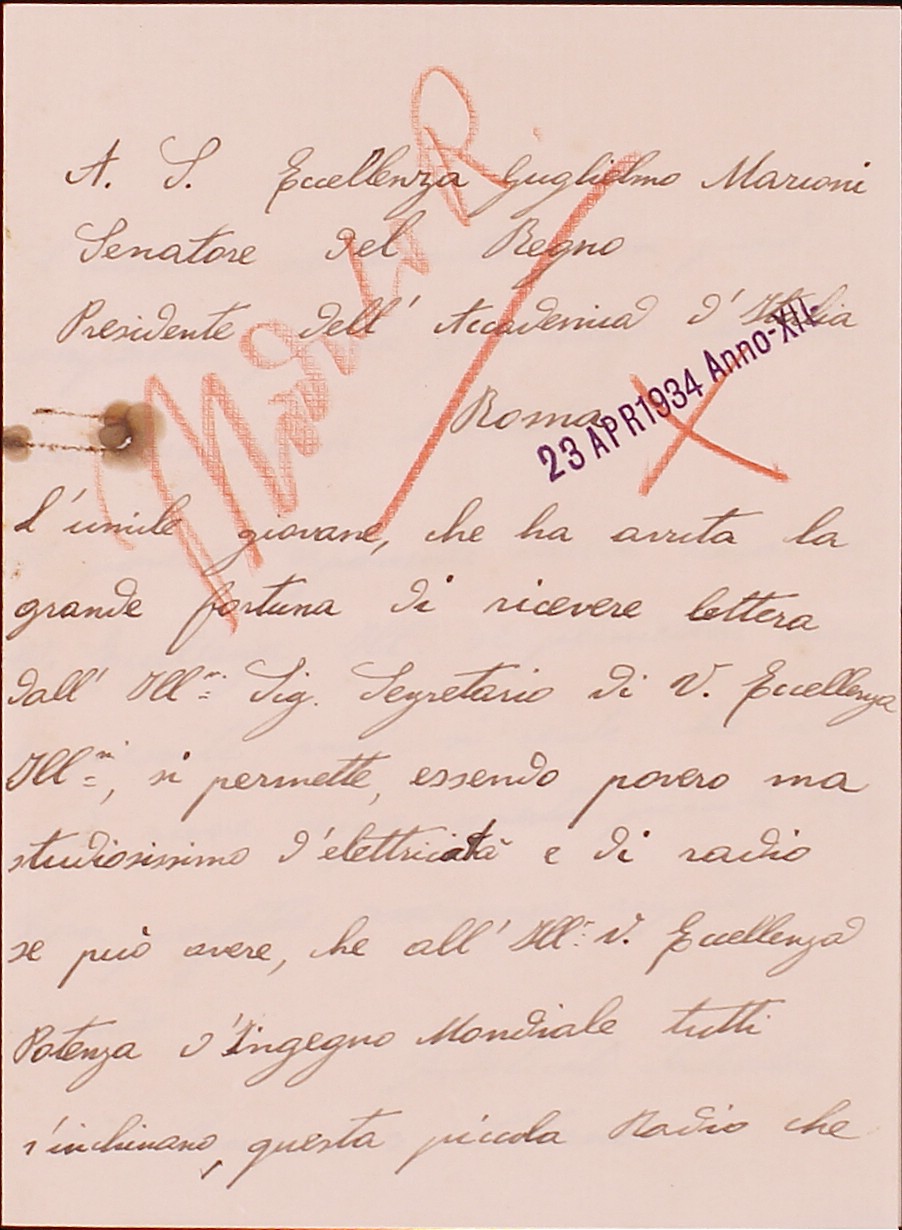 A. S. Eccellenza Guglielmo Marconi
Senatore del Regno
Presidente dell' Accademia d'Italia
Roma
23 APR 1934 Anno-XII
L'umile giovane, che ha avuta la
grande fortuna di ricevere lettera
dall' Ill.mo Sig. Segretario di V. Eccellenza
Ill.ma, si permette, essendo povero ma
studiosissimo d'elettricità e di radio
se può avere, che all' Ill. V. Eccellenza
Potenza d'Ingegno Mondiale tutti
s'inchinano, questa piccola Radio che